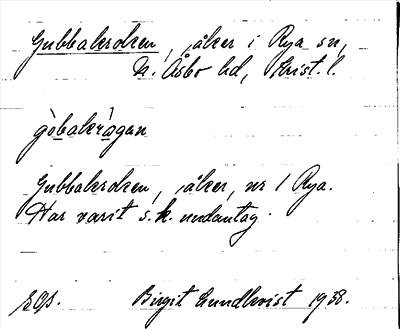 Gubbakroken, åker i Rya sn,
N. Åsbo hd, Krist. l.
gò̀bakrågen
Gubbakroken, åker, nr 1 Rya.
Har varit s.k. undantag.
Birgit Lundkvist 1938.